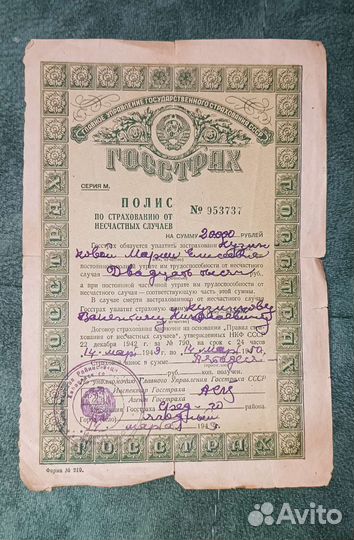 ГЛАВНОЕ УПРАВЛЕНИЕ ГОСУДАРСТВЕННОГО СТРАХОВАНИЯ СССР
ГОССТРАХ
СЕРИЯ М.
ПОЛИС
ПО СТРАХОВАНИЮ ОТ
НЕСЧАСТНЫХ СЛУЧАЕВ
№ 953737
НА СУММУ 20000 РУБЛЕЙ
Госстрах обязуется уплатить застрахованному
Марии
постоянной утрате им трудоспособности от несчастного
случая Двадцать тысяч руб.,
а при постоянной частичной утрате им трудоспособности от
несчастного случая — соответствующую часть этой суммы.
В случае смерти застрахованного от несчастного случая
Госстрах уплатит страховую сумму
Валентину
Договор страхования заключен на основании „Правил страхования
от несчастного случая", утвержденных НКФ СССР
22 декабря 1942 г. за № 790, на срок с 24 часов
14 март 1949 г. по 14 март 1950 г.
Страховой взнос в сумме
руб. коп. получен.
По уполномочию Главного Управления Госстраха СССР
Инспектор Госстраха
Агент Госстраха
Инспекция Госстраха района.
марта 1949 г.
ГОССТРАХ
Форма № 219.
Avito